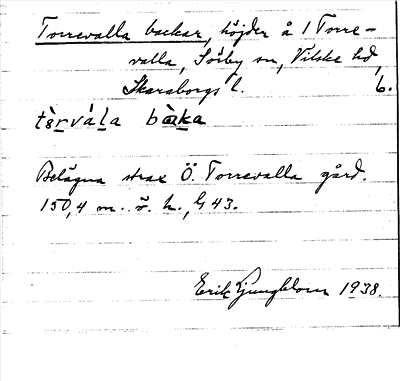 Torrevalla backar, höjder å 1 Torre-
valla, Sörby sn, Vilske hd,
Skaraborgs l. 6.
tè̀rvála bàka
Belägna strax Ö. Torrevalla gård.
150,4 m. ö. h., G 43.
Erik Ljungblom 1938.